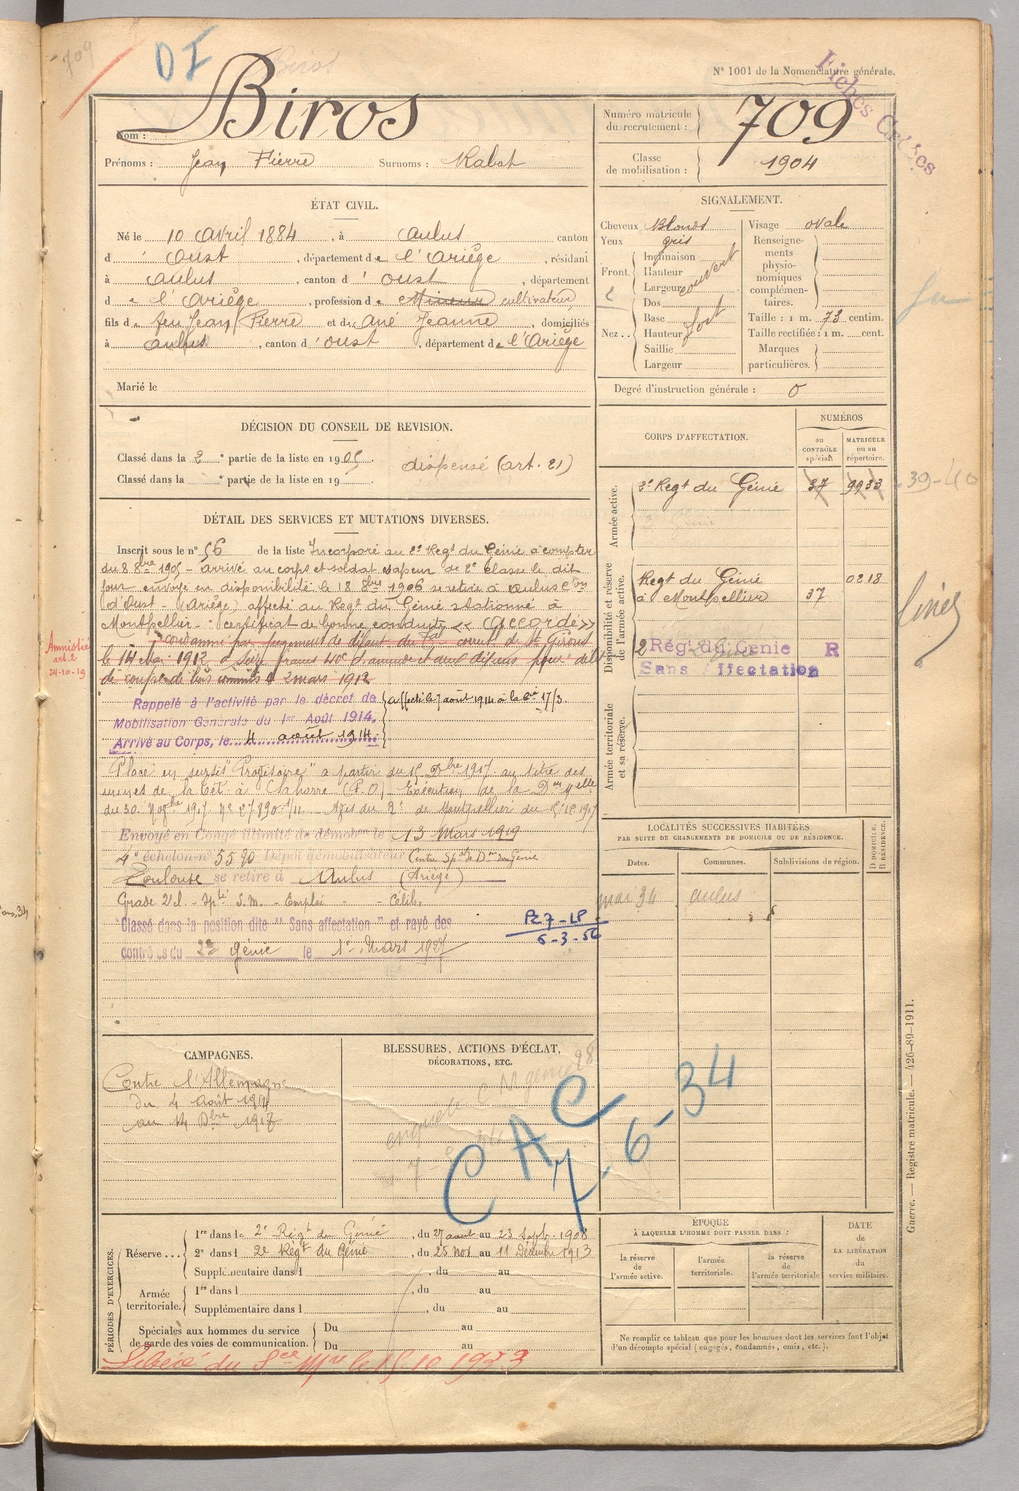 709
DI
Biros
N° 1001 de la Nomenclature générale.
Fichés Croisés
Nom : Biros
Prénoms : Jean Pierre Surnoms : Rabat
Numéro matricule du recrutement : 709
Classe de mobilisation : 1904
ÉTAT CIVIL.
Né le 10 avril 1884, à Aulus canton
d' Oust, département de l'Ariège, résidant
à Aulus, canton d' Oust, département
de l'Ariège, profession de Mineur cultivateur
fils de feu Jean Pierre et de Ané Jeanne, domiciliés
à Aulus, canton d' Oust, département de l'Ariège
Marié le
SIGNALEMENT.
Cheveux Blonds
Yeux gris
Front. Inclinaison
Hauteur
Largeur
couvert
Nez... Dos
Base
Hauteur
Saillie
Largeur
fort
Visage ovale
Renseignements physionomiques complémentaires.
Taille : 1 m. 73 centim.
Taille rectifiée : 1 m. cent.
Marques particulières.
Degré d'instruction générale : 0
DÉCISION DU CONSEIL DE REVISION.
Classé dans la 2e partie de la liste en 1905.
Classé dans la e partie de la liste en 19
dispensé (art. 21)
CORPS D'AFFECTATION.
NUMÉROS
au CONTRÔLE spécial.
MATRICULE ou au répertoire.
Armée active.
2e Regt du Génie 37 9933
39-40
Disponibilité et réserve de l'armée active.
Regt du Génie 0218
à Montpellier 37
2 Rég. du Génie R
Sans affectation
Armée territoriale et sa réserve.
DÉTAIL DES SERVICES ET MUTATIONS DIVERSES.
Inscrit sous le n° 56 de la liste Incorporé au 2e Regt du Génie à compter
du 8 8bre 1905 - arrivé au corps et soldat sapeur de 2e classe le dit
jour envoyé en disponibilité le 18 1906 se retire à Aulus con
d'Oust - (Ariège) affecté au Regt du Génie stationné à
Montpellier - certificat de bonne conduite << Accordé >>
condamné par jugement de défaut du Tal correct. de St Girons
le 14 Mai 1912 à seize francs 40c d'amende et aux dépens pour délit
de coupe de bois commis le 2 mars 1912
Amnistié
art. 2
24-10-19
Rappelé à l'activité par le décret de
Mobilisation Générale du 1er Août 1914,
Arrivé au Corps, le 4 août 1914
affecté le 7 août 1914 à la Cie 17/3
Placé en sursis "Provisoire" à partir du 15 Dbre 1917 au titre des
usines de la Cot. à Claborre (P.O) - Exécution de la Don Melle
du 30 Novbre 1917 N° 27890 1/11 - Affé du 2e de Montpellier du
Envoyé en Congé illimité de démobon le 13 Mars 1919
4e échelon n° 5590 Dépôt démobilisateur Centre Spal de Don du Génie
Toulouse se retire à Aulus (Ariège)
Grade 2e cl. - Spté S.M. - Emploi - - Célib.
"Classé dans la position dite "Sans affectation" et rayé des
contrôles du 2e Génie le 1er Mars 1927
PZ7-LP
6-3-56
LOCALITÉS SUCCESSIVES HABITÉES
PAR SUITE DE CHANGEMENTS DE DOMICILE OU DE RÉSIDENCE.
Dates. Communes. Subdivisions du région.
D DOMICILE. R RÉSIDENCE.
mai 34 Aulus
CAMPAGNES.
Contre l'Allemagne
du 4 août 1914
au 14 Dbre 1917
BLESSURES, ACTIONS D'ÉCLAT,
DÉCORATIONS, ETC.
CAC
7-6-34
PÉRIODES D'EXERCICES.
Réserve... 1re dans le 2e Régt du Génie, du 27 août au 23 Septe 1908
2e dans le 2e Régt du Génie, du 25 Nov au 11 Décembre 1913
Supplémentaire dans l , du au
Armée territoriale. 1re dans l , du au
Supplémentaire dans l , du au
Spéciales aux hommes du service de garde des voies de communication. Du au
Du au
Libéré du Sce Mre le 15 10 1933
ÉPOQUE
À LAQUELLE L'HOMME DOIT PASSER DANS :
la réserve de l'armée active.
l'armée territoriale.
la réserve de l'armée territoriale
DATE DE LA LIBÉRATION du service militaire.
Ne remplir ce tableau que pour les hommes dont les services font l'objet
d'un décompte spécial (engagés, condamnés, omis, etc.).
Guerre. — Registre matricule. — 426-89-1911.